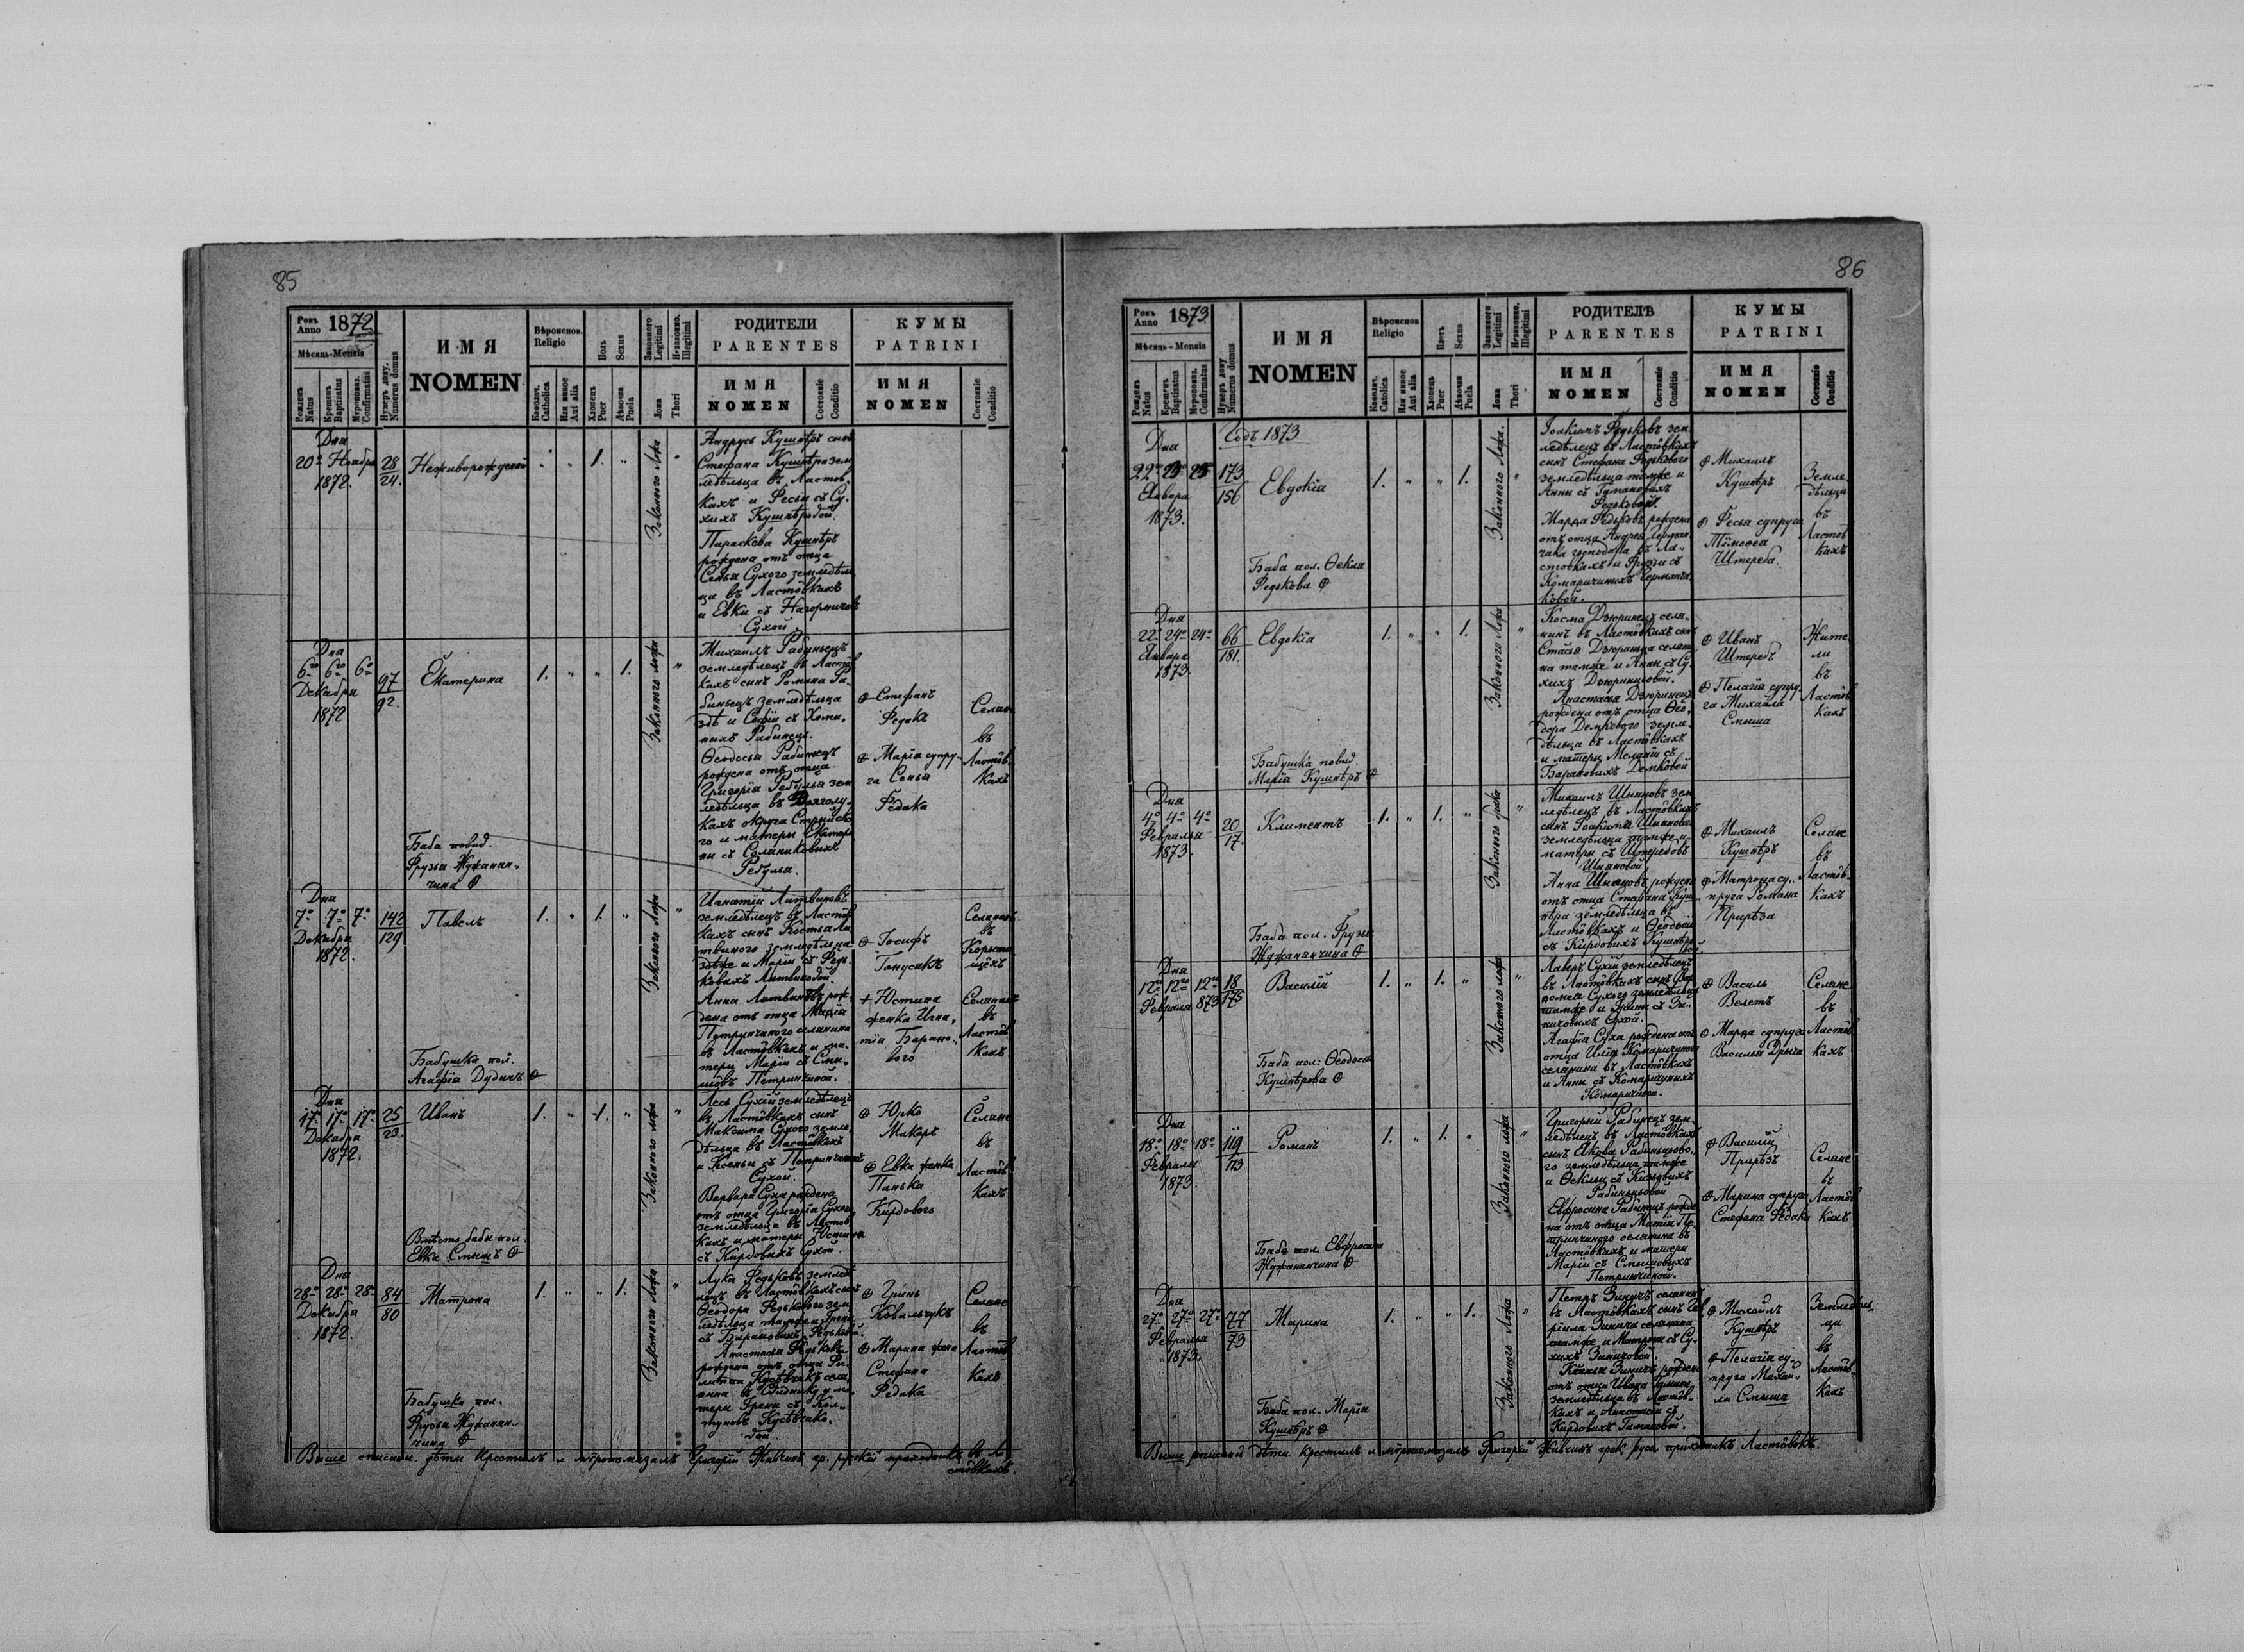 85
Рокъ Anno 1872
Мѣсяць-Mensis
Рожденъ Natus
Крещенъ Baptisatus
Мѵропомаз. Confirmatus
Нумеръ дому. Numerus domus
ИМЯ
NOMEN
Вѣроиспов. Religio
Католич. Catholica
Или инное Aut alia
Полъ Sexus
Хлопецъ Puer
Дѣвочка Puela
Законного Legitimi
Незаконно. Illegitimi
Ложа Thori
РОДИТЕЛИ
PARENTES
ИМЯ
NOMEN
Состояніе Conditio
КУМЫ
PATRINI
ИМЯ
NOMEN
Состояніе Conditio
Дня
20º Ноября
1872.
28
24.
Неживорожденый
1.
Законного Ложа
Андрусь Кушнѣръ сынъ
Стефана Кушнѣра зем
ледѣльца въ Ластов
кахъ и Фесьи съ Су
хихъ Кушнѣровой.
Параскева Кушнѣръ
рождена отъ отца
Сеньа Сухого земледѣль
ца въ Ластôвкахъ
и Евки съ Нагорничовъ
Сухой
Дня
6го 6го 6º
Декабря
1872
97
92.
Екатерина
1. 1.
Законного ложа
Михаилъ Рабинецъ
земледѣлецъ въ Ластôв
кахъ сынъ Романа Ра
бинецъ земледѣльца
здѣ и Софіи съ Хоми
ныхъ Рабинецъ.
Ѳеодосья Рабинецъ
рождена отъ отца
Григорія Ребульа зем
ледѣльца въ Долголу
кахъ округа Стрыйско
го и матери Екатери
ны съ Солениковихъ
Ребулы.
Стефанъ
Федакъ
Марія супру-
га Сенья
Федака
Селяне
въ
Ластôв.
кахъ
Баба повид.
Фрузья Жджанян-
чина
Дня
7º 7º 7º
Декабря
1872.
142
129
Павелъ
1. 1.
Законного Ложа
Игнатій Литвиновъ
земледѣлецъ въ Ластôв
кахъ сынъ Костья Ли
твиного земледѣльца
здѣже и Маріи съ Федь
ковихъ Литвиновой
Анна Литвиновъ рож
дена отъ отца
Петричиного селянина
въ Ластôвкахъ и ма
тери Маріи съ Смы
шôвъ Петричиной.
Іосифъ
Ганусякъ
Юстина
женка Игна,
тія Барано-
вого
Селянинъ
въ
Селянинъ
въ
Ластôв
кахъ
Бабушка пол.
Агафія Дудичъ
Дня
17º 17º 17º
Декабря
1872.
25
23.
Иванъ
1. 1.
Законного ложа
Лесь Сухій земледѣлецъ
въ Ластôвкахъ сынъ
Максима Сухого земле
дѣльца въ Ластôвкахъ
и Ксеньи съ Петричиныхъ
Сухой.
Варвара Суха рождена
отъ отца Григорія Сухого
земледѣльца въ Ластôв
кахъ и матери Юстины
съ Кирдовихъ Сухой.
Юрко
Макаръ
Евка женка
Панька
Кирдового
Селяне
въ
Ластôв
кахъ
Вмѣсто бабы пол.
Евка Смышъ
Дня
28º 28º 28º
Декабря
1872.
84
80
Матрона
1. 1.
Законного Ложа
Лука Федьковъ земледѣ
лецъ въ Ластôвкахъ сынъ
Ѳеодора Федькового зем
ледѣльца тамже и
съ Барановихъ Федьковой.
Анастасія Федьковъ
рождена отъ отца
Гринь
Ковальчукъ
Марина жена
Стефана
Федака
Селяне
въ
Ластôв
кахъ
Бабушка пол.
Фрузья Жджанян-
чина
Выше описаныи дѣти крестилъ и мѵропомазалъ Григорій Жывчинъ гр. русскій приходникъ въ Ла
стôвкахъ.
86
Рокъ Anno 1873
Мѣсяць - Mensis
Рожденъ Natus
Крещенъ Baptisatus
Мѵропомаз. Confirmatus
Нумеръ дому Numerus domus
ИМЯ
NOMEN
Вѣроиспов Religio
Католич. Catolica
Или инное Aut alia
Плоть Sexus
Хлопецъ Puer
Дѣвочка Puela
Законного Legitimi
Незаконно. Illegitimi
Ложа Thori
РОДИТЕЛѢ
PARENTES
ИМЯ
NOMEN
Состояніе Conditio
КУМЫ
PATRINI
ИМЯ
NOMEN
Состояніе Conditio
Годъ 1873
Дня
22º
Января
1873.
173
156
Евдокія
1. 1.
Законного Ложа.
Іоакимъ Федьковъ зем
ледѣлецъ въ Ластôвкахъ
сынъ Стефана Федькового
земледѣльца тамже и
Анны съ Гимановихъ
Федьковой.
Марфа Федьковъ рождена
отъ отца Андрея Герман
чака господаря въ Ла-
стовкахъ и Фрузьи съ
Комаричиныхъ Германча
ковой.
Михаилъ
Кушнѣръ
Фесья супруга
Тимоѳеа
Штереба.
Земле
дѣльци
въ
Ластôв
кахъ
Баба пол. Ѳекла
Федькова
Дня
22º 24º 24º
Января
1873.
66
181.
Евдокія
1. 1.
Законного Ложа
Косма Дзюринецъ селя
нинъ въ Ластôвкахъ сынъ
Стасья Дзюринца селяни
на тамже и Анны съ Су
хихъ Дзюринцовой.
Анастасія Дзюринецъ
рождена отъ отца Ѳео
дора Демкового земле
дѣльца въ Ластôвкахъ
и матери Меланіи съ
Барановихъ Демковой
Иванъ
Штеребъ
Пелагія супру
га Михаила
Смыша
Жите
ли
въ
Ластôв
кахъ
Бабушка повид
Марія Кушнѣръ
Дня
4º 4º 4º
Февраля
1873.
20
17.
Климентъ
1. 1.
Михаилъ Шияновъ зем
ледѣлецъ въ Ластôвкахъ
сынъ Іоакима Шиянового
земледѣльца тамже и
матери съ Штеребовъ
Шияновой
Анна Шияновъ рождена
отъ отца Стефана Куш
нѣра земледѣльца въ
Ластôвкахъ и Ѳеодосіи
съ Кирдовихъ Кушнѣро
вой
Михаилъ
Кушнѣръ
Матрона су
пруга Романа
Прирѣза
Селяне
въ
Ластôв-
кахъ
Баба пол. Фрузья
Жджанянчина
Дня
12º 12го 12го
Февраля 873
18
175
Василій
1. 1.
Законного ложа
Лаверъ Сухій земледѣлецъ
въ Ластôвкахъ сынъ Вар
ѳомея Сухого земледѣльца
тамже и съ Зи-
ничовыхъ Сухой.
Агафія Суха рождена отъ
отца Иліи Комаричиного
селянина въ Ластôвкахъ
и Анны съ Комаричиныхъ
Комаричиной.
Василь
Велетъ
Марфа супруга
Василья Дрыча
Селяне
въ
Ластôв
кахъ
Баба пол: Ѳеодосья
Кушнѣрова
Дня
18º 18º 18º
Февраля
1873.
119
113
Романъ
1. 1.
Законного ложа
Григорій Рабинецъ зем
ледѣлецъ въ Ластôвкахъ
сынъ Якова Рабиньцово
го земледѣльца тамже
и Ѳеклы съ
Рабиньцовой
Евфросина Рабинецъ рожде
на отъ отца Матія Пе
тричиного селянина въ
Ластôвкахъ и матери
Маріи съ Смышовыхъ
Петричиной.
Василій
Прирѣзъ
Марина супруга
Стефана Федака
Селяне
въ
Ластôв
кахъ
Баба пол. Евфросина
Жджанянчина
Дня
27º 27º 27º
Февраля
1873.
77
73
Марина
1. 1.
Законного Ложа
Петръ Зиничъ селянинъ
въ Ластôвкахъ сынъ Гав
ріила Зинича селянина
тамже и Матроны съ Су
хихъ Зиничовой.
Ксенья Зиничъ рождена
отъ отца Ивана Гимана
земледѣльца въ Ластôв
кахъ и Анастасіи съ
Кирдовихъ Гимановой.
Михаилъ
Кушнѣръ
Пелагія су-
пруга Михаи-
ла Смыша
Земледѣль
ци
въ
Ластôв-
кахъ
Баба пол. Марія
Кушнѣръ
Выше описаныи дѣти крестилъ и мѵропомазалъ Григорій Жывчинъ грек. русс. приходникъ Ластôвокъ.